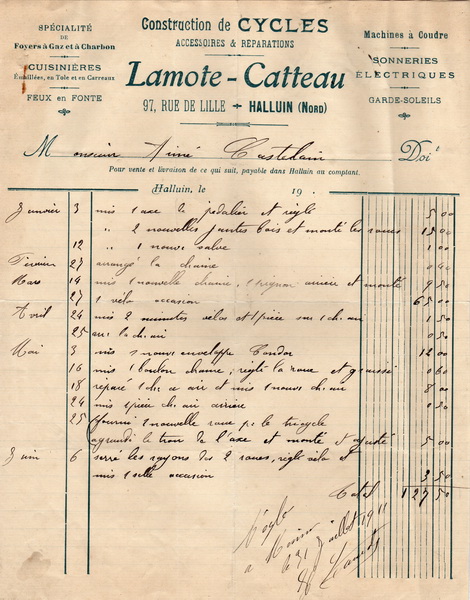 SPÉCIALITÉ
DE
Foyers à Gaz et à Charbon
CUISINIÈRES
Émaillées, en Tole et en Carreaux
FEUX en FONTE
Construction de CYCLES
ACCESSOIRES & RÉPARATIONS
Lamote-Catteau
97, RUE DE LILLE + HALLUIN (NORD)
Machines à Coudre
SONNERIES
ELECTRIQUES
GARDE-SOLEILS
Monsieur Aimé Castelain Doit
Pour vente et livraison de ce qui suit, payable dans Halluin au comptant.
Halluin, le 19
Janvier 3 mis 1 axe de pedalier et réglé 5 00
" 2 nouvelles jantes bois et monté les roues 15 00
12 " 1 nouv valve 1 00
Février 27 arrangé la chaine 0 40
Mars 14 mis 1 nouvelle chaine, 1 pignon arrière et monté 9 50
27 1 vélo occasion 65 00
Avril 24 mis 2 vélos et 1 pièce sur 1 ch. air 1 50
25 arr la ch. air 0 50
Mai 3 mis 1 nouv enveloppe Condor 12 00
16 mis 1 boulon chaine, réglé la roue et graissé 0 60
18 réparé 1 ch air et mis 1 nouv ch. air 8 00
24 mis 1 pièce ch. air arrière 0 50
25 fourni 1 nouvelle roue pr le tricycle
agrandi le trou de l'axe et monté et ajusté 5 00
Juin 6 serré les rayons des 2 roues, réglé vélo et
mis 1 selle occasion 3 50
Total 127 50
Réglé
le 31 Juillet 1911